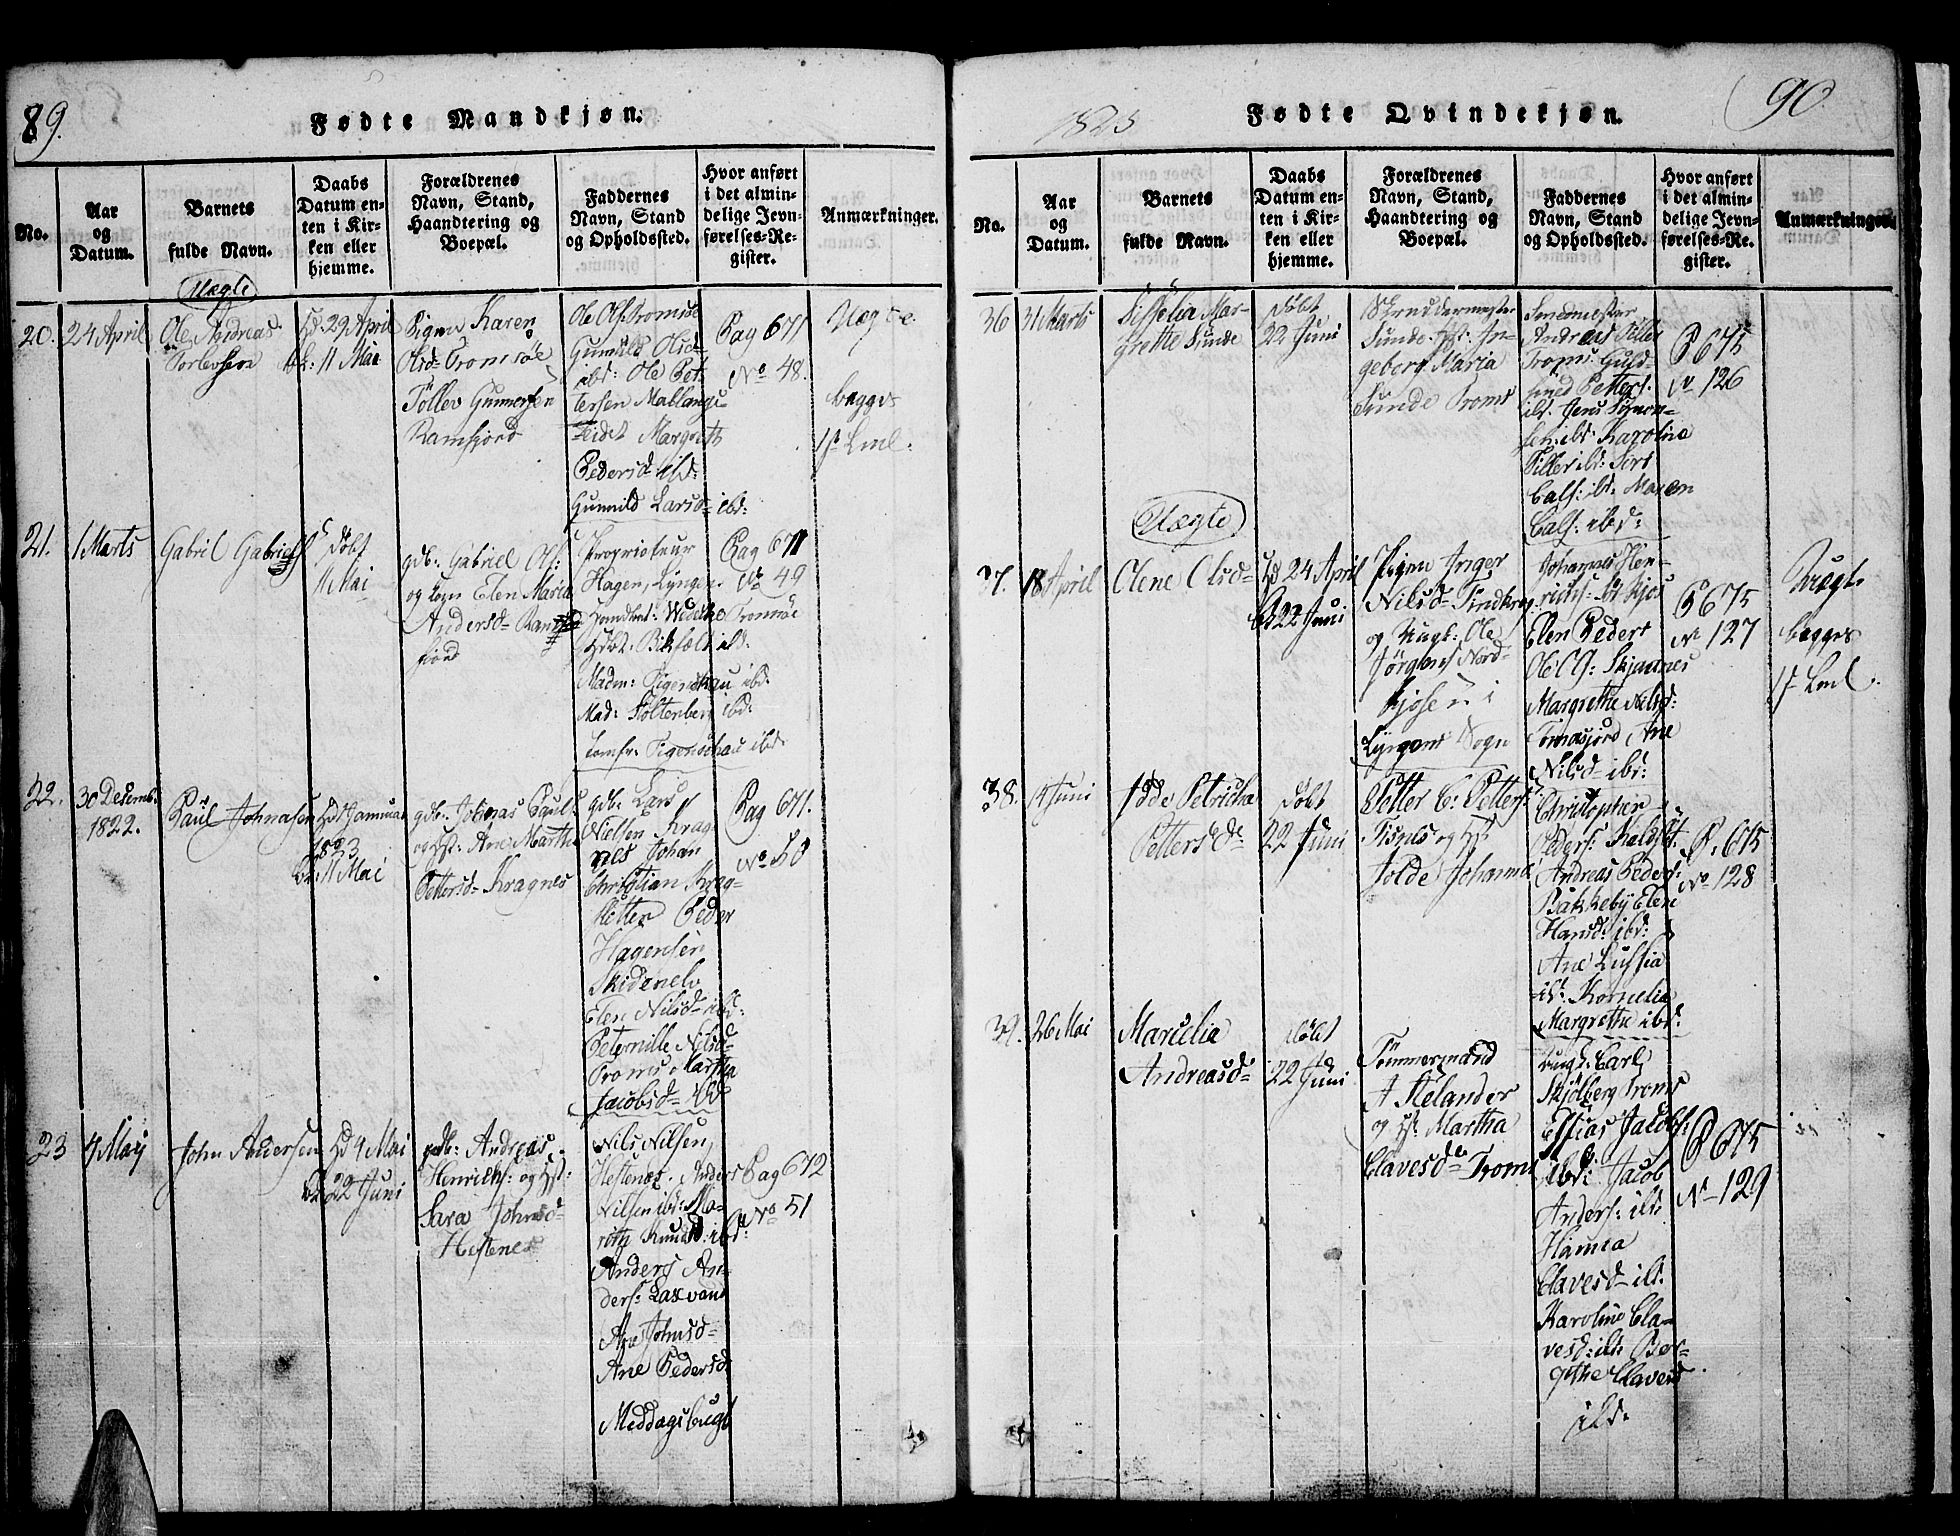 89.
Fødte Mandkjøn.
No.
Aar
og
Datum.
Barnets
fulde Navn.
Daabs
Datum en-
ten i Kir-
ken eller
hjemme.
Forældrenes
Navn, Stand,
Haandtering og
Boepæl.
Faddernes
Navn, Stand
og Opholdssted.
Hvor anført
i det almin-
delige Jevn-
førelses-Re-
gister.
Anmærkninger.
Uægte
20.
24 April
Ole Andreas
Torlevsen
Hd: 29 April
bk: 11 Mai
Pigen Karen
Olsd- Tromsøe
Tollev Gunnersen
Ramfjord
Ole Ols Tromsøe
Gunnild Olsd-
ibd: Ole Pet-
tersen Mallangs
Eidet Margreth
Pedersd- ibd:
Gunnild Larsd- ibd:
Pag 671
No 48.
Uægte
begges
1st Leml:
21.
1 Marts
Gabril Gabriels
Døbt
11 Mai
gdb: Gabriel Ols:
og Kone Elen Maria
Andersd- Ramf
fiord
Proprioteur
Hagen, Lyngen
Handlend: Wedelke Tromsøe
Hdbt. Bikfælt ibd.
Madm: Figenschau ibd.
Mad: Stoltenberg ibd:
Jomfr: Figenschau ibd:
Pag 671
No 49
22.
30 Desemb.
1822.
Paul Johnasen
Hd Januar
1823
bk: 11 Mai
gdb: Johnas Pauls:
og Hst: Ane Martha
Pettersd- Kragnes
gdb: Lars
Nielsen Krag-
nes Johan
Christian Krag-
Sletten Peder
Hagensen
Skidenelv
Elen Nilsd- ibd:
Peternille Nilsd-
Troms Martha
Jacobsd- ibd
Pag 671.
No 50
23
4 Maij
John Andersen
Hd 4 Mai
bk 22 Juni
gdb: Andreas
Henrichs: og Hst:
Sara Johnsd-
Hestenes
Nils Nilsen
Hestenes. Anders
Nilsen ibd: Ma-
rith Knudsd: ibd:
Anders An-
ders: Laxvand
Ane Johnsd-
Ane Pedersd-
Meddagsbugt
Pag 672
No 51
1823
Fødte Qvindekjøn.
90
No.
Aar
og
Datum.
Barnets
fulde Navn.
Daabs
Datum en-
ten i Kir-
ken eller
hjemme.
Forældrenes
Navn, Stand,
Haandtering og
Boepæl.
Faddernes
Navn, Stand
og Opholdssted.
Hvor anført
i det almin-
delige Jevn-
førelses-Re-
gister.
Anmærkninger.
36
31 Marts
Sisselia Mar-
grette Sunde
Døbt
22 Juni
Skreddermester
Sunde Hst: In-
geborg Maria
Sunde Troms
Smedmester
Andreas Filler
Troms Guld-
smed Petters:
ibd. Jens Søren-
sen: ibd: Karolina
Filler ibd: Sort
Cals: ibd. Maren
Cals: ibd:
P 675
N 126
Uægte
37.
18 April
Olene Olsd-
Hd 24 April
bk 22 Juni
Pigen Inger
Nilsd- Tindkrog
og Ungk: Ole
Jørgens Nord-
Kjosen i
Lyngens Sogn
Johannes Hen-
richs:
Elen Peders
Ole Ols: Skjaanes
Margrethe Nilsd:
Tomasjord Ane
Nilsd- ibd:
P 675
No 127
Uægt.
begges
1st Leml.
38.
Juni
Idde Petricha
Pettersdr
Døbt
22 Juni
Petter C: Petters:
Tisnes og Hst
Jolde Johanna
Christopher
Peders: Kaldsl:
Andreas Peders:
Bakkeby Elen
Hansd: ibd:
Ane Lussia
ibd: Kornelia
Margrethe ibd:
P. 675
No 128
39.
26 Mai
Marcelia
Andreasd-
Døbt
22 Juni
Tømmermand
A Helander
og Hst. Martha
Clavesdr Troms
Ungk Carl
Skjølberg Troms
Essias Jacobs:
ibd: Jacob
Anders: ibd:
Hanna
Clavesd- ibd:
Karoline Cla-
vesd: ibd: Ber-
gitthe Clavesd
ibd.
P 675
No 129